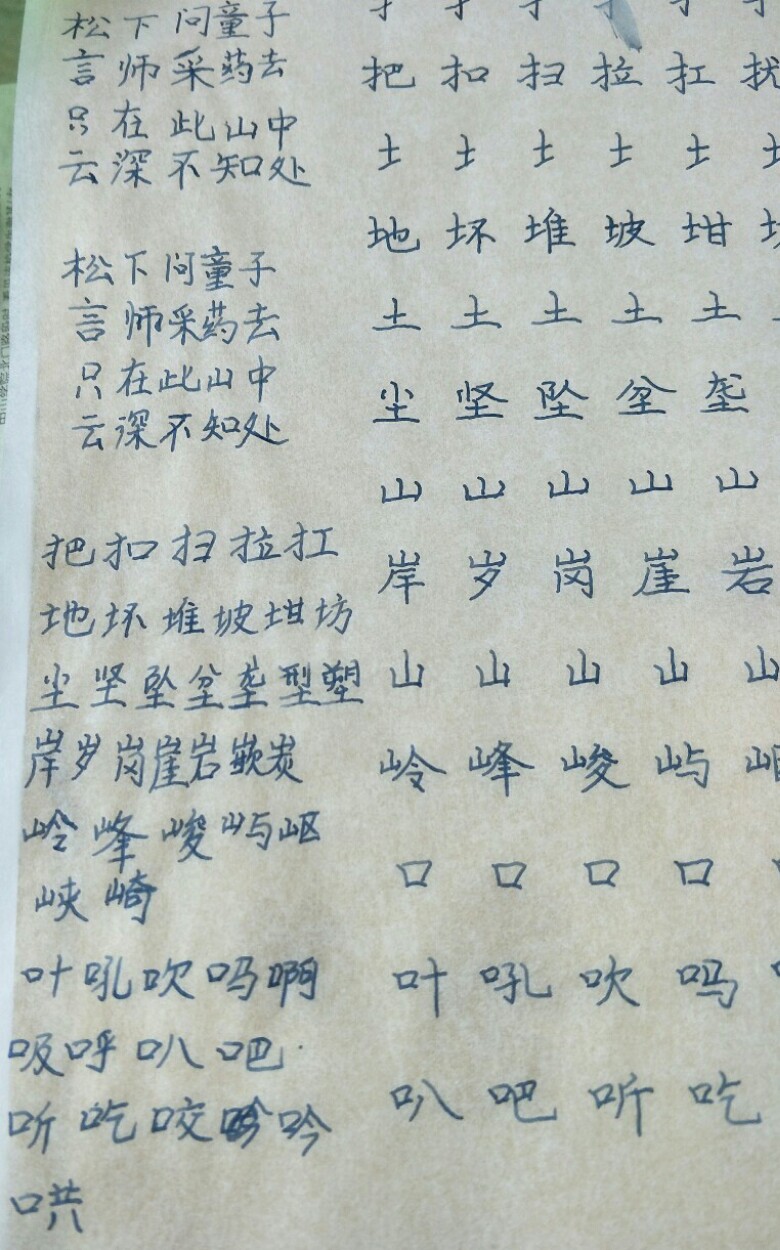 松下问童子
言师采药去
只在此山中
云深不知处
松下问童子
言师采药去
只在此山中
云深不知处
把扣扫拉扛
地坏堆坡坩坊
尘坚坠坌垄型塑
岸岁岗崖岩嵚炭
岭峰峻屿岖
峡崎
叶吼吹吗啊
吸呼叭吧
听吃咬吟
哄
扌扌扌扌扌扌
把扣扫拉扛扰
土土土土土土
地坏堆坡坩坊
土土土土土
尘坚坠坌垄
山山山山山
岸岁岗崖岩
山山山山山
岭峰峻屿岖
口口口口
叶吼吹吗
叭吧听吃